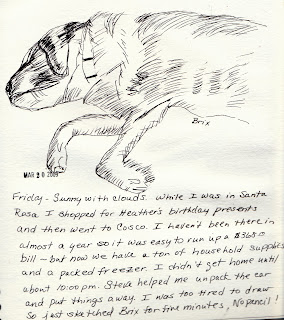 Brix
MAR 20 2009
Friday - Sunny with clouds. While I was in Santa
Rosa I shopped for Heather's birthday presents
and then went to Cosco. I haven't been there in
almost a year so it was easy to run up a $365.00
bill - but now we have a ton of household supplies
and a packed freezer. I didn't get home until
about 10:00pm. Steve helped me unpack the car
and put things away. I was too tired to draw
So just sketched Brix for five minutes, No pencil!